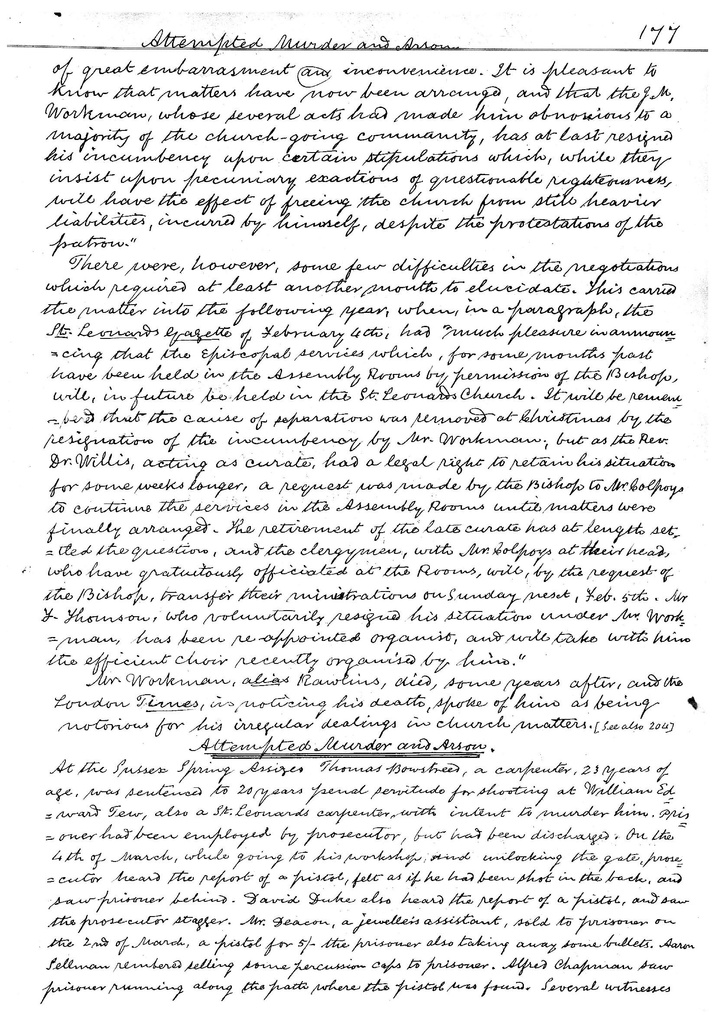 177
Attempted Murder and Arson
of great embarrasment and inconvenience. It is pleasant to
know that matters have now been arranged, and that the J. M.
Workman, whose several acts had made him obnoxious to a
majority of the church-going community, has at last resigned
his incumbency upon certain stipulations which, while they
insist upon pecuniary exactions of questionable righteousness,
will have the effect of freeing the church from still heavier
liabilities, incurred by himself, despite the protestations of the
patron."
There were, however, some few difficulties in the negotiations
which required at least another month to elucidate. This carried
the matter into the following year, when, in a paragraph, the
St. Leonards Gazette of February 4th, had "much pleasure in announ=
=cing that the Episcopal services which, for some months past
have been held in the Assembly Rooms by permission of the Bishop,
will, in future be held in the St. Leonards Church. It will be remem=
=bered that the cause of separation was removed at Christmas by the
resignation of the incumbency by Mr. Workman; but as the Rev.
Dr. Willis, acting as curate, had a legal right to retain his situation
for some weeks longer, a request was made by the Bishop to Mr. Colpoys
to continue the services in the Assembly Rooms until matters were
finally arranged. The retirement of the late curate has at length set-
=tled the question, and the clergymen, with Mr. Colpoys at their head,
who have gratuitously officiated at the Rooms, will, by the request of
the Bishop, transfer their ministrations on Sunday next, Feb. 5th. Mr.
F. Thomson, who voluntarily resigned his situation under Mr. Work
=man, has been re-appointed organist, and will take with him
the efficient choir recently organised by him."
Mr. Workman, alias Rawlins, died, some years after, and the
London Times, in noticing his death, spoke of him as being
notorious for his irregular dealings in church matters. [See also 204]
Attempted Murder and Arson.
At the Sussex Spring Assizes Thomas Bowstreed, a carpenter, 23 years of
age, was sentenced to 20 years penal servitude for shooting at William Ed
=ward Tew, also a St. Leonards carpenter, with intent to murder him. Pris=
=oner had been employed by prosecutor, but had been discharged. On the
4th of March, while going to his workshop and unlocking the gate, prose=
=cutor heard the report of a pistol, felt as if he had been shot in the back, and
saw prisoner behind. David Duke also heard the report of a pistol, and saw
the prosecutor stagger. Mr. Deacon, a jeweller's assistant, sold to prisoner on
the 2nd of March, a pistol for 5/- the prisoner also taking away some bullets. Aaron
Sellman rembered selling some percussion caps to prisoner. Alfred Chapman saw
prisoner running along the path where the pistol was found. Several witnesses